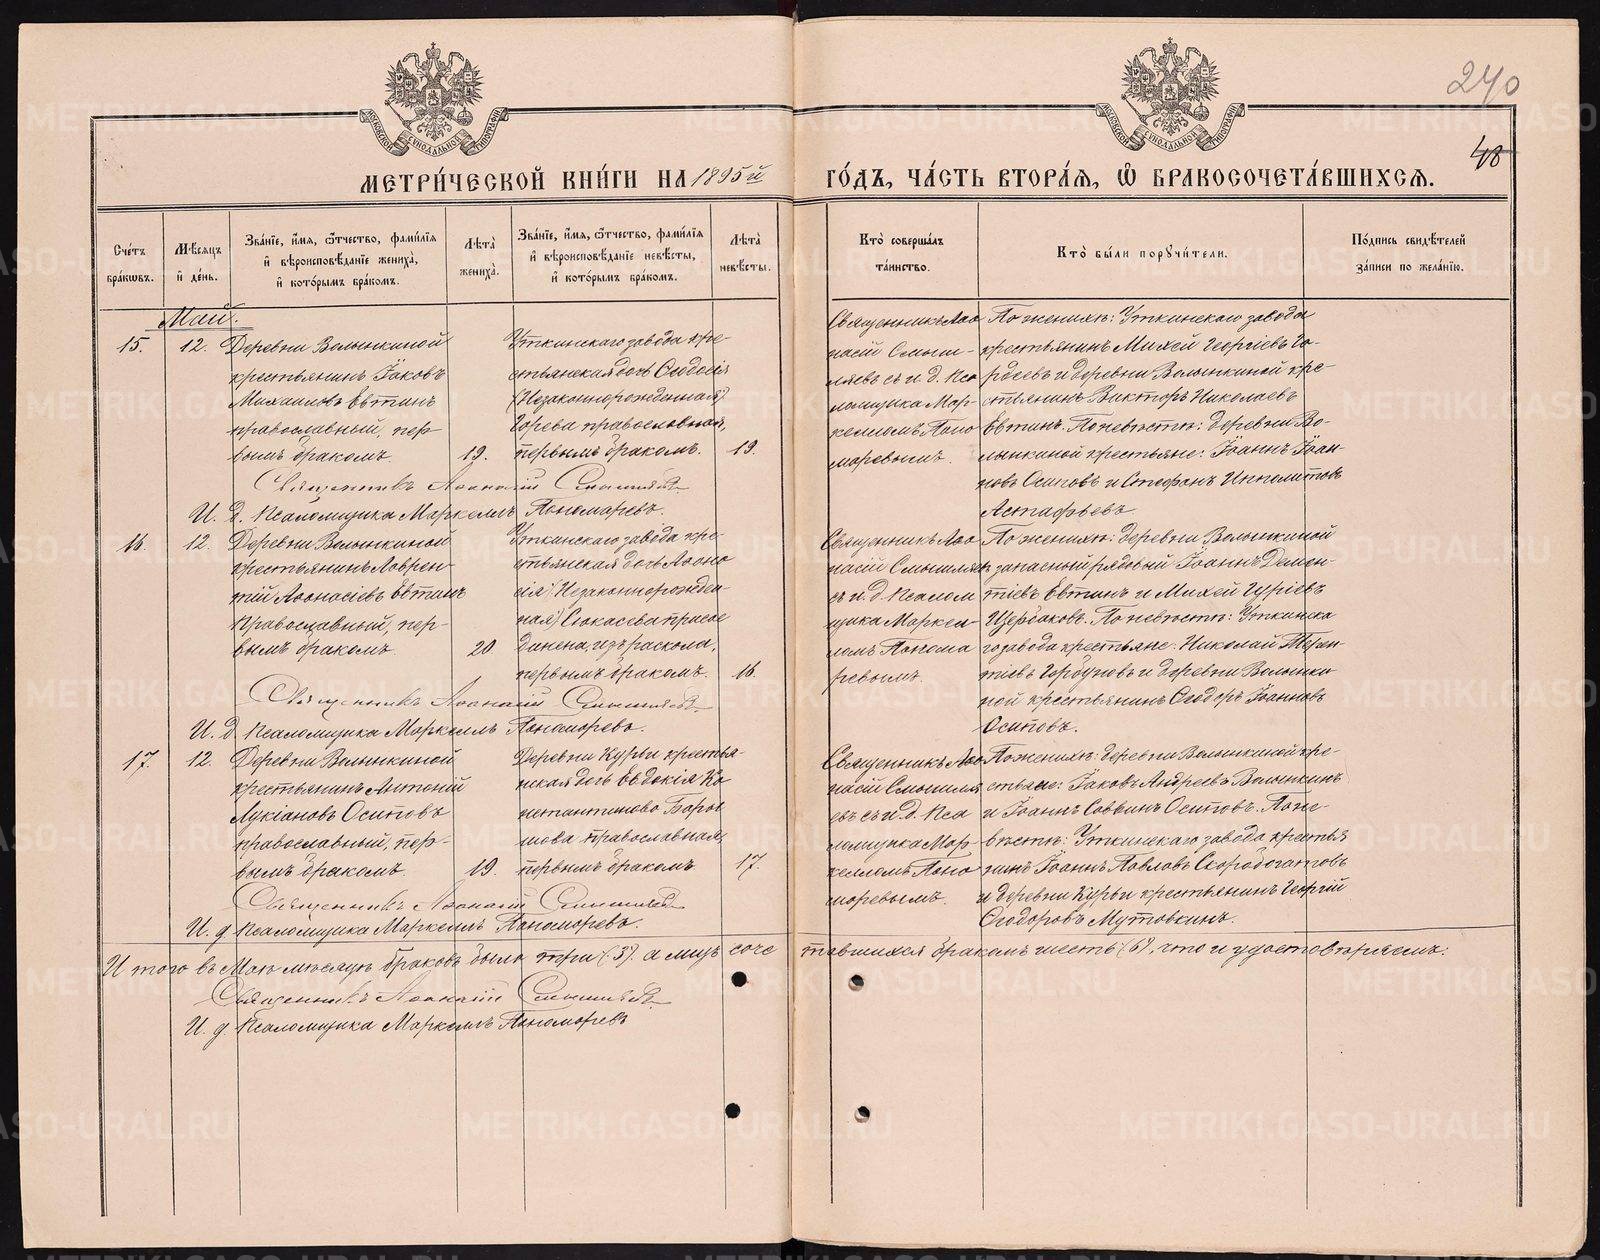 240
48
МЕТРИ́ЧЕСКОЙ КНИ́ГИ НА 1895й ГО́ДЪ, ЧА́СТЬ ВТОРА́Я, Ѡ БРАКОСОЧЕТА́ВШИХСЯ.
Сче́тъ бра́кѡвъ.
Мѣ́сяцъ и҆ де́нь.
Зва́нїе, и҆́мя, ѻ҆́тчество, фами́лїя и҆ вѣроисповѣ́данїе жениха̀, и҆ кото́рымъ бра́комъ.
Лѣ́та жениха̀.
Зва́нїе, и҆́мя, ѻ҆́тчество, фами́лїя и҆ вѣроисповѣ́данїе невѣ́сты, и҆ кото́рымъ бра́комъ.
Лѣ́та невѣ́сты.
Кто̀ соверша́лъ та́инство.
Кто̀ бы́ли порꙋчи́тели.
По́дпись свидѣ́телей за́писи по жела́нїю.
Май.
15.
12.
Деревни Волынкиной
крестьянинъ Іаковъ
Михаиловъ Евтинъ
православный, пер-
вымъ бракомъ.
19.
Уткинскаго завода кре-
стьянская дочь Ѳеодосія
(Незаконнорожденная)
православная,
первымъ бракомъ.
19.
Священникъ Аѳа
насій Смыш-
ляевъ съ и. д. Пса
ломщика Мар-
келломъ Поно
маревымъ.
По женихѣ: Уткинскаго завода
крестьянинъ Михей Георгіевъ Го-
рдеевъ и деревни Волынкиной кре-
стьянинъ Викторъ Николаевъ
Евтинъ. По невѣстѣ: деревни Во-
лынкиной крестьяне: Іоаннъ Іоан-
новъ Осиповъ и Стефанъ Ипполитовъ
Астафьевъ
Священникъ Аѳанасій Смышляевъ
И. д. Псаломщика Маркеллъ Пономаревъ.
16.
12.
Деревни Волынкиной
крестьянинъ Лаврен-
тій Аѳонасіевъ Евтинъ
православный, пер-
вымъ бракомъ.
20
Уткинскаго завода кре
стьянская дочь Аѳана
сія (Незаконнорожден
ная) присое
динена изъ раскола,
первымъ бракомъ.
16.
Священникъ Аѳа
насій Смышляев
съ и. д. Псалом
щика Маркел-
ломъ Понома
ревымъ.
По женихѣ: деревни Волынкиной
запасный рядовой Іоаннъ Демен-
тіевъ Евтинъ и Михей Гуріевъ
Щербаковъ. По невѣстѣ: Уткинска
го завода крестьяне: Николай Терен
тіевъ Горбуновъ и деревни Волынки
ной крестьянинъ Ѳеодоръ Іоанновъ
Осиповъ.
Священникъ Аѳанасій Смышляевъ
И. д. Псаломщика Маркеллъ Пономаревъ.
17.
12.
Деревни Волынкиной
крестьянинъ Антоній
Лукіановъ Осиповъ
православный, пер-
вымъ бракомъ.
19.
Деревни Курьи крестья-
нская дочь Евдокія Ко
нстантинова
православная,
первымъ бракомъ
17.
Священникъ Аѳа
насій Смышля
евъ съ и. д. Пса
ломщика Мар-
келломъ Поно
маревымъ.
По женихѣ: деревни Волынкиной кре-
стьяне: Іаковъ Андреевъ Волынкинъ
и Іоаннъ Саввинъ Осиповъ. По не-
вѣстѣ: Уткинскаго завода крестья
нинъ Іоаннъ Павловъ Скоробогатовъ
и деревни Курьи крестьянинъ Георгій
Ѳеодоровъ Мутовкинъ.
Священникъ Аѳанасій Смышляевъ
И. д. Псаломщика Маркеллъ Пономаревъ.
И того въ Маѣ мѣсяцѣ браковъ было три (3), а лицъ соче тавшихся бракомъ шесть (6), что и удостовѣряемъ:
Священникъ Аѳанасій Смышляевъ
И. д. Псаломщика Маркеллъ Пономаревъ
METRIKI.GASO-URAL.RU